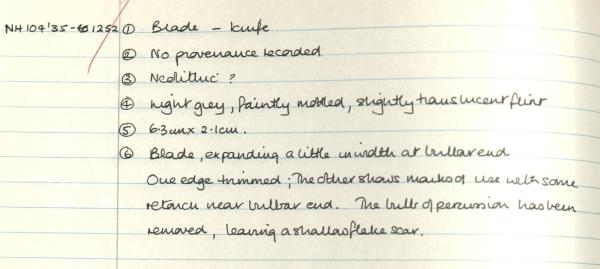 NH 104'35-1252 ① Blade - knife
② No provenance recorded
③ Neolithic ?
④ Light grey, faintly mottled, slightly translucent flint
⑤ 6.3cm x 2.1cm.
⑥ Blade, expanding a little in width at bulbar end
One edge trimmed; The other shows marks of use with some
retouch near bulbar end. The bulb of percussion has been
removed, leaving a shallow flake scar.